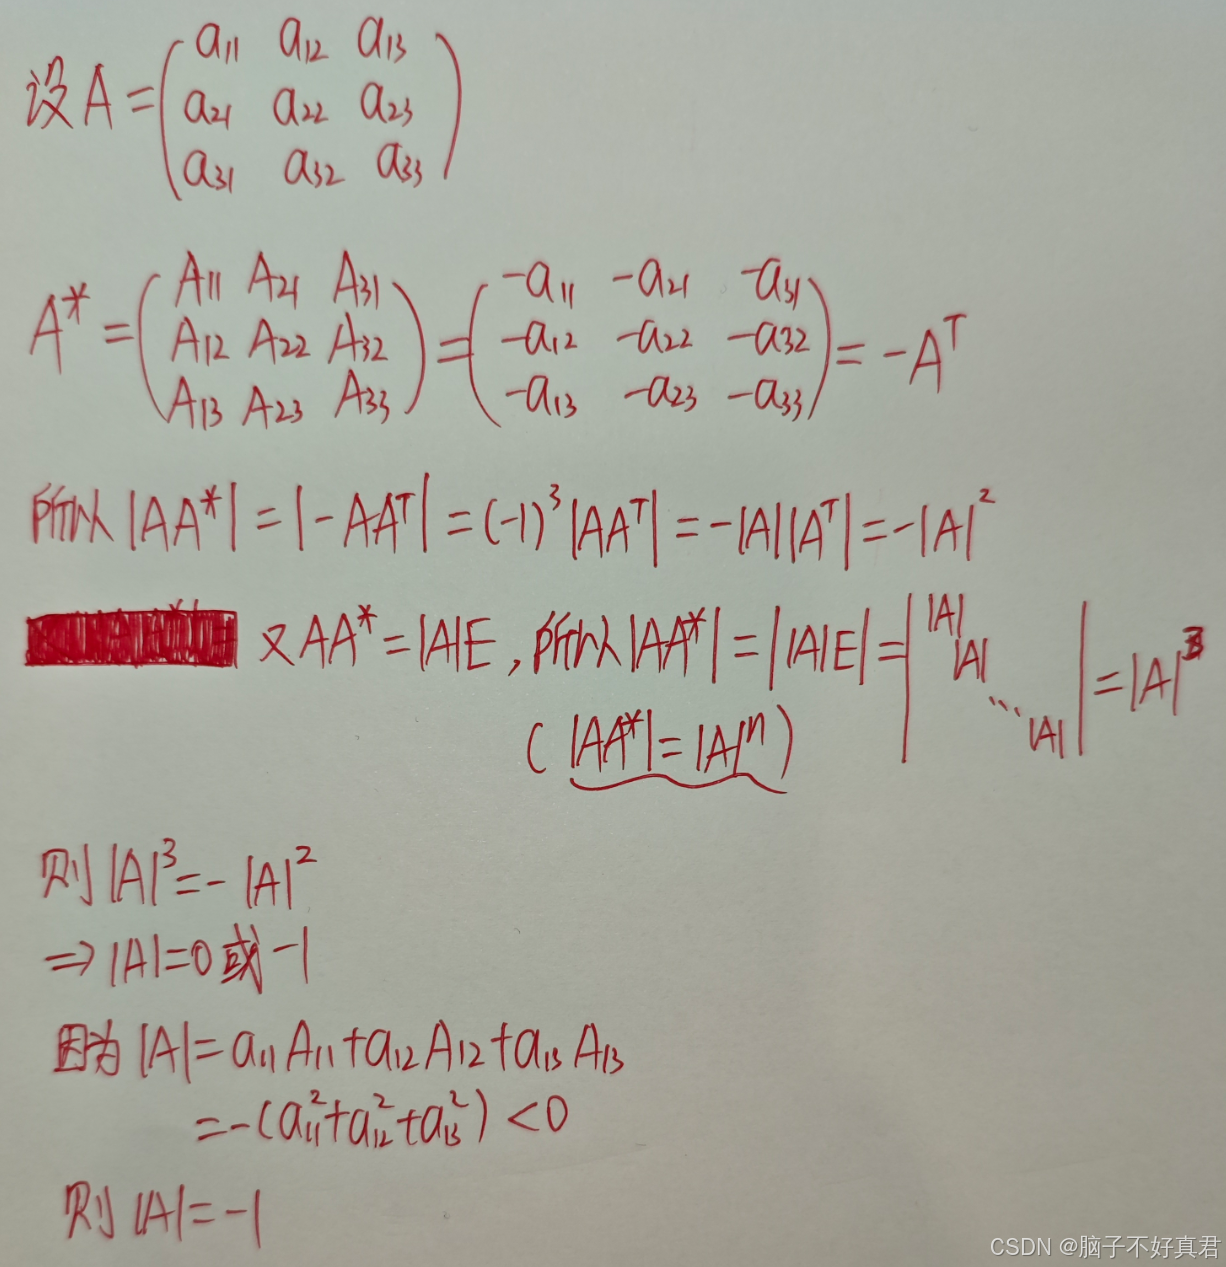 设A=(a₁₁ a₁₂ a₁₃
a₂₁ a₂₂ a₂₃
a₃₁ a₃₂ a₃₃)
A*=(A₁₁ A₂₁ A₃₁ = (-a₁₁ -a₂₁ -a₃₁
A₁₂ A₂₂ A₃₂ -a₁₂ -a₂₂ -a₃₂
A₁₃ A₂₃ A₃₃) -a₁₃ -a₂₃ -a₃₃) = -Aᵀ
所以|AA*|=|-AAᵀ|=(-1)³|AAᵀ|=-|A||Aᵀ|=-|A|²
又AA*=|A|E,所以|AA*|=||A|E|=| |A| |A| ⋱ |A| |=|A|³
(|AA*|=|A|ⁿ)
则|A|³=-|A|²
⇒|A|=0或-1
因为|A|=a₁₁A₁₁+a₁₂A₁₂+a₁₃A₁₃
=-(a₁₁²+a₁₂²+a₁₃²)<0
则|A|=-1
CSDN @脑子不好真君